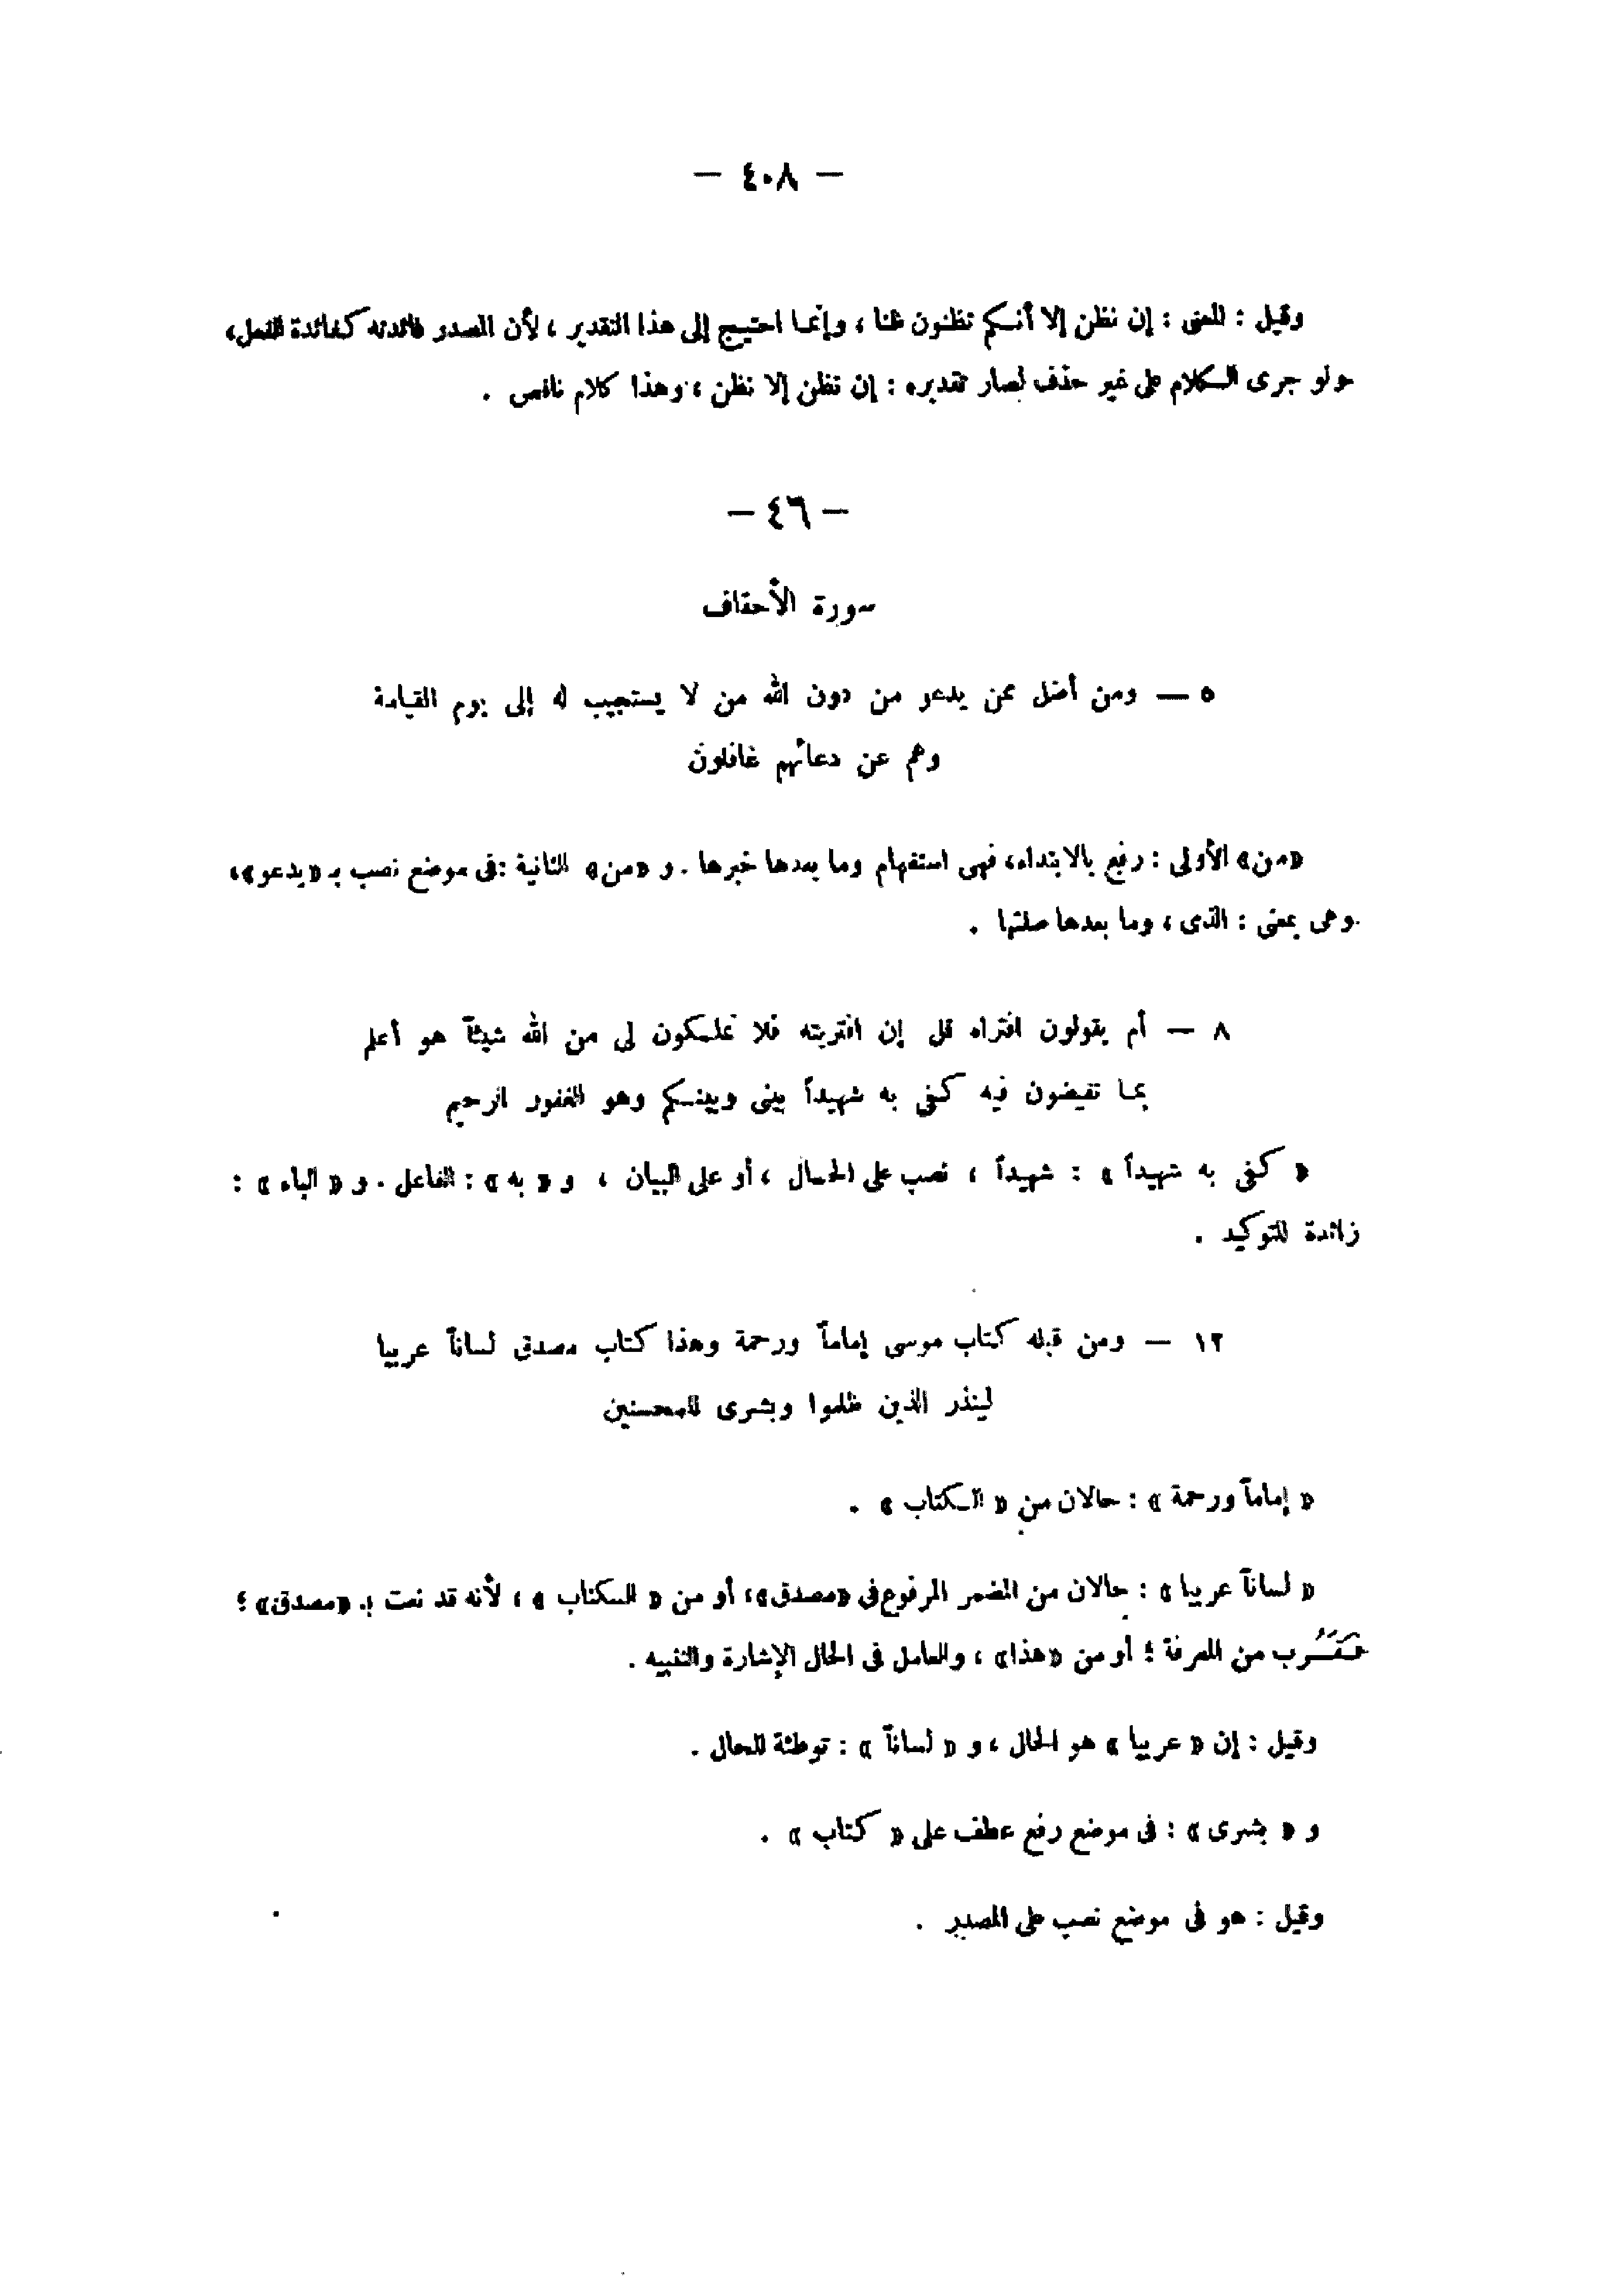 — ٤٠٨ —
وقيل : المعنى : إن نظن إلا أنكم تظنون ظنا ، وإنما احتيج إلى هذا التقدير ، لأن المصدر فائدته كفائدة الفعل ،
ولو جرى الكلام على غير حذف لصار تقديره : إن نظن إلا نظن ، وهذا كلام ناقص .
— ٤٦ —
سورة الأحقاف
٥ — ومن أضل ممن يدعو من دون الله من لا يستجيب له إلى يوم القيامة
وهم عن دعائهم غافلون
«من» الأولى : رفع بالابتداء، فهى استفهام وما بعدها خبرها . و «من» الثانية : فى موضع نصب بـ «يدعو» ،
وهى بمعنى : الذى ، وما بعدها صلتها .
٨ — أم يقولون افتراه قل إن افتريته فلا تملكون لى من الله شيئاً هو أعلم
بما تفيضون فيه كفى به شهيداً بينى وبينكم وهو الغفور الرحيم
« كفى به شهيداً » : شهيداً ، نصب على الحال ، أو على البيان ، و « به » : الفاعل . و « الباء » :
زائدة للتوكيد .
١٢ — ومن قبله كتاب موسى إماماً ورحمة وهذا كتاب مصدق لساناً عربيا
لينذر الذين ظلموا وبشرى للمحسنين
« إماماً ورحمة » : حالان من « الكتاب » .
« لساناً عربيا » : حالان من المضمر المرفوع فى «مصدق» ، أو من « الكتاب » ، لأنه قد نعت بـ «مصدق» ؛
فقَرُب من المعرفة ؛ أو من «هذا» ، والعامل فى الحال الإشارة والتنبيه .
وقيل : إن « عربيا » هو الحال ، و « لساناً » : توطئة للحال .
و « بشرى » : فى موضع رفع عطف على « كتاب » .
وقيل : هو فى موضع نصب على المصدر .